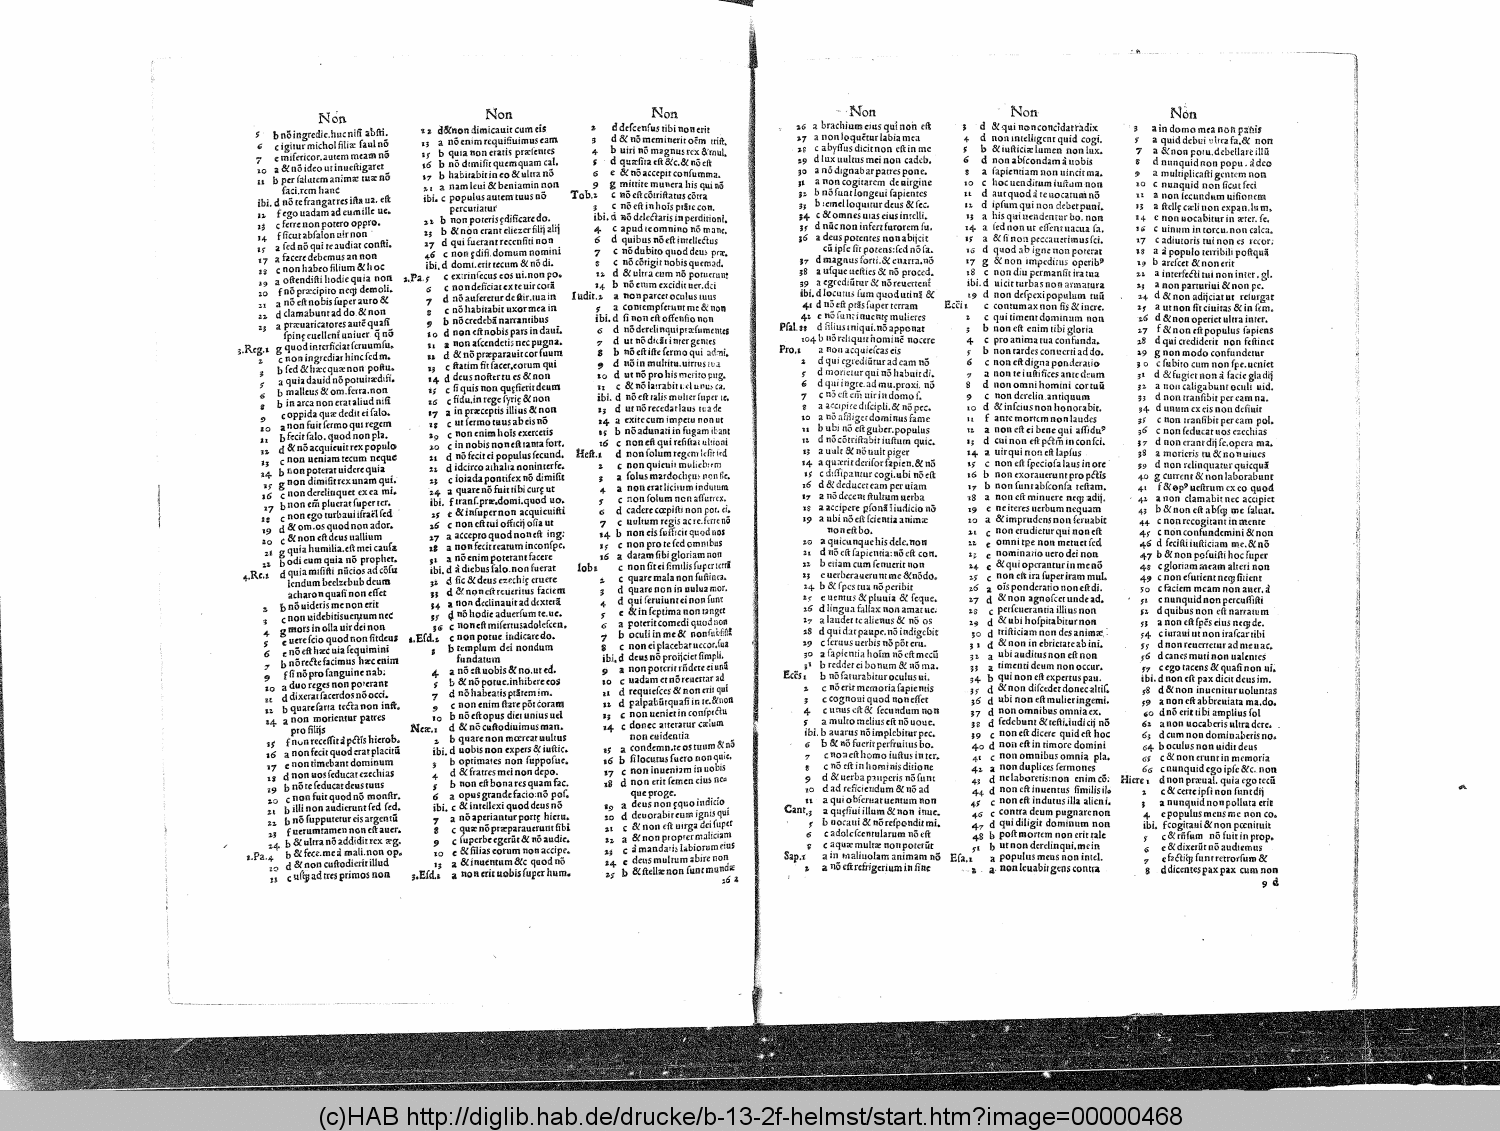 Non
5 b nō ingredie. huc nisi absti.
6 c igitur michol filiæ saul nō
7 c misericor. autem meam nō
10 a & nō ideo ut inuestigaret
11 b per salutem animæ tuæ nō
faci. rem hanc
ibi. d nō refrangat res ista ua. est
12 f ego uadam ad eum ille ue.
13 c ferre non potero oppro.
14 f sicut absalon uir non
15 a sed nō qui te audiat consti.
17 a facere debemus an non
18 c non habeo filium & hoc
19 a ostendisti hodie quia non
20 f nō præcipito neq; demoli.
21 a nō est nobis super auro &
22 d clamabunt ad do. & non
23 a præuaricatores autē quasi
3. Reg. 1 g quod interficiat seruum su.
2 c non ingrediar hinc sed m.
3 b sed & hæc quæ non postu.
5 a quia dauid nō potuit ædifi.
6 b malleus & om. ferra. non
8 b in arca non erat aliud nisi
9 c oppida quæ dedit ei salo.
10 a non fuit sermo qui regem
11 b fecit salo. quod non pla.
12 d & nō acquieuit rex populo
13 c non ueniam tecum neque
14 b non poterat uidere quia
15 g non dimisit rex unam qui.
16 c non derelinquet ex ea mi.
17 b non em̄ pluerat super ter.
18 c non ego turbaui israël sed
19 d & om. os quod non ador.
20 c & non est deus uallium
21 g quia humilia. est mei causa
22 b odi eum quia nō prophet.
4. Re. 1 d quia misisti nūcios ad cōsu
lendum beelzebub deum
acharon quasi non esset
2 b nō uideris me non erit
3 c non uidebitis uentum nec
4 g mors in olla uir dei non
5 e uere scio quod non sit deus
6 e nō est hæc uia sequimini
7 b nō recte facimus hæc enim
9 f si nō pro sanguine nab;
10 a duo reges non poterant
11 d dixerat sacerdos nō occi.
12 b quare sarta tecta non inst.
14 a non morientur patres
pro filijs
15 f non recessit à pctīs hierob.
16 a non fecit quod erat placitū
17 e non timebant dominum
18 d non uos seducat ezechias
19 b nō te seducat deus tuus
20 c non fuit quod nō monstr.
21 b illi non audierunt sed sed.
22 b nō supputetur eis argentū
23 f uerumtamen non est auer.
24 b & ultra nō addidit rex æg.
1. Pa. 4 b & fece. me à mali. non op.
10 d & non custodierit illud
11 c usq; ad tres primos non
Non
12 d & non dimicauit cum eis
13 a nō enim requisiuimus eam
15 b quia non eratis præsentes
16 b nō dimisit quemquam cal.
17 b habitabit in eo & ultra nō
21 a nam leui & beniamin non
ibi. c populus autem tuus nō
percutiatur
22 b non poteris ędificare do.
23 b nō erant eliezer filij alij
27 d qui fuerant recensiti non
28 c non ędifi. domum nomini
ibi. d domi. erit tecum & nō di.
2. Pa. 5 c extrinsecus eos ui. non po.
6 c non deficiat ex te uir corā
7 d nō auferetur de stir. tua in
8 c nō habitabit uxor mea in
9 b nō credebā narrantibus
10 d non est nobis pars in daui.
11 a non ascendetis nec pugna.
12 d & nō præparauit cor suum
13 c statim sit facer. eorum qui
14 d deus noster tu es & non
15 c si quis non quęsierit deum
16 c fidu. in rege syrię & non
17 a in præceptis illius & non
18 c ut sermo tuus ab eis nō
19 c non enim hoīs exercetis
20 c in nobis non est tanta fort.
21 d nō fecit ei populus secund.
22 d idcirco athalia non interfe.
23 c ioiada pontifex nō dimisit
24 a quare nō fuit tibi curę ut
ibi. f transf. præ. domi. quod uo.
25 e & insuper non acquieuisti
26 c non est tui officij ozia ut
27 a accepto quod non est ing:
28 a non fecit rectum in conspe.
31 a nō enim poterant facere
ibi. d à diebus salo. non fuerat
32 d sic & deus ezechię eruere
33 d & non est reueritus faciem
34 a non declinauit ad dexterā
35 d nō hodie aduersum te. ue.
36 c non est misertus adolescen.
1. Esd. 2 c non potue indicare do.
3 b templum dei nondum
fundatum
4 a nō est uobis & no. ut ed.
5 b & nō potue. inhibere eos
7 d nō habeatis ptātem im.
9 c non enim stare pōt coram
10 b nō est opus diei unius uel
Nee. 1 d & nō custodiuimus man.
2 b quare non mœreat uultus
ibi. d uobis non expers & iustic.
3 b optimates non supposue.
4 d & fratres mei non depo.
5 b non est bona res quam fac.
6 a opus grande facio: nō pos.
ibi. c & intellexi quod deus nō
7 a nō aperiantur portę hieru.
8 c quæ nō præparauerunt sibi
9 c superbe egerūt & nō audie.
10 e & filias eorum non accipe.
13 a & inuentum &c quod nō
3. Esd. 1 a non erit uobis super hum.
Non
2 d descensus tibi non erit
3 d & nō meminerit oēm trist.
4 b uiri nō magnus rex & mul.
5 d quæsita est &c. & nō est
6 e & nō accepit consumma.
9 g mittite munera his qui nō
Tob. 2 c nō est cōtristatus cōtra
3 c nō est in hoīs ptāte con.
ibi. d nō delectaris in perditioni.
4 c apud te omnino nō mane.
6 d quibus nō est intellectus
7 c nō dubito quod deus præ.
8 c nō cōtigit nobis quemad.
12 d & ultra eum nō potuerunt
14 b nō enim excidit uer. dei
Iudit. 2 a non parcet oculus tuus
5 a contempserunt me & non
ibi. d si non est offensio non
6 d nō derelinqui præsumentes
7 d ut nō dicāt inter gentes
8 b nō est iste sermo qui ad mi.
9 d nō in multitu. uirtus tua
10 d ut nō pro his merito pug.
ibi. d nō est talis mulier super te.
13 d ut nō recedat laus tua de
14 a exite cum impetu non ut
15 b nō adunati in fugam ibant
16 c non est qui resistat ultioni
Hest. 1 d non solum regem lesit sed
2 c non quieuit muliebrem
3 a solus mardocheus non fle.
4 a non erat licitum indutum
5 c non solum non assurrex.
6 d cadere cœpisti non pot. ei.
7 c uultum regis ac re. ferre nō
14 b non eis sufficit quod nos
15 c non pro te sed omnibus
16 a datam sibi gloriam non
Iob 1 c non sit ei similis super terrā
2 c quare mala non sustinea.
3 d quare non in uulua mor.
4 d qui seruiunt ei non sunt
5 e & in septima non tanget
6 a poterit comedi quod non
7 b oculi in me & non subsistā
8 c non ei placebat uecor. sua
ibi. d deus nō proijciet simpli.
9 a non poterit rñdere ei unū
10 c uadam et nō reuertar ad
11 d requiesces & non erit qui
12 d palpabūt quasi in te. & non
13 c non ueniet in conspectu
14 c donec atteratur cœlum
non euidentia
15 a condemn. te os tuum & nō
16 b si locutus fuero non quie.
17 c non inueniam in uobis
18 d non erit semen eius neq
que proge.
19 a deus non ęquo iudicio
20 d deuorabit eum ignis qui
21 c & non est uirga dei super
22 a & non propter maliciam
23 c à mandatis labiorum eius
24 e deus multum abire non
25 b & stellæ non sunt mundæ
26 2
Non
26 a brachium eius qui non est
27 a non loquētur labia mea
28 c abyssus dicit non est in me
29 d lux uultus mei non cadeb.
30 a nō dignabar patres pone.
31 a non cogitarem de uirgine
32 b nō sunt longeui sapientes
33 b semel loquitur deus & sec.
34 c & omnes uias eius intelli.
35 d nūc non infert furorem su.
36 a deus potentes non abijcit
cū ipse sit potens: sed nō sa.
37 d magnus forti. & enarra. nō
38 a usque uesties & nō proced.
39 a egrediūtur & nō reuertentur
ibi. d locutus sum quod utinā &
41 d nō est ptās super terram
42 e nō sunt inuentę mulieres
Psal. 11 d filius iniqui. nō apponat
104 b nō reliquit hominē nocere
Pro. 1 a non acquiescas eis
2 d qui egrediūtur ad eam nō
5 d morietur qui nō habuit di.
6 d qui ingre. ad mu. proxi. nō
7 c nō est em̄ uir in domo s.
8 a accipite discipli. & nō pec.
10 a nō affliget dominus fame
11 b ubi nō est guber. populus
12 d nō cōtristabit iustum quic.
13 a uult & nō uult piger
14 a quærit derisor sapien. & nō
15 c dissipantur cogi. ubi nō est
16 d & deducet eam per uiam
17 a nō decent stultum uerba
18 a accipere psonā ī iudicio nō
19 a ubi nō est scientia animæ
non est bo.
20 a quicunque his dele. non
21 d nō est sapientia: nō est con.
22 b etiam cum senuerit non
23 c uerberauerunt me & nō do.
24 b & spes tua nō peribit
25 e uentus & pluuia & seque.
26 d lingua fallax non amat ue.
27 a laudet te alienus & nō os
28 d qui dat paupe. nō indigebit
29 c seruus uerbis nō pōt eru.
30 a sapientia hoīm nō est mecū
31 b reddet ei bonum & nō ma.
Eccs 1 b nō saturabitur oculus ui.
2 c nō erit memoria sapientis
3 c cognoui quod non esset
4 c unus est & secundum non
5 a multo melius est nō uoue.
ibi. b auarus nō implebitur pec.
6 b & nō fuerit perfruitus bo.
7 c non est homo iustus in ter.
8 c nō est in hominis ditione
9 d & uerba pauperis nō sunt
10 d ad reficiendum & nō ad
11 a qui obseruat uentum non
Cant. 3 a quęsiui illum & non inue.
5 b uocaui & nō respondit mi.
6 c adolescentularum nō est
8 c aquæ multæ non poterūt
Sap. 1 a in maliuolam animam nō
2 a nō est refrigerium in fine
Non
3 d & qui non concidat radix
4 d non intelligent quid cogi.
5 b & iusticiæ lumen non lux.
6 d non abscondam à uobis
8 a sapientiam non uincit ma.
10 c hoc uenditum iustum non
12 d aut quod à te uocatum nō
12 d ipsum qui non debet puni.
13 a his qui uendentur bo. non
14 a sed non ut essent uacua sa.
15 a & si non peccauerimus sci.
16 d quod ab igne non poterat
17 g & non impeditus operibꝰ
18 c non diu permansit ira tua
ibi. d uicit turbas non armatura
19 d non despexi populum tuū
Ecci 1 c contumax non sis & incre.
2 c qui timent dominum non
3 b non est enim tibi gloria
4 c pro anima tua confunda.
5 b non tardes conuerti ad do.
6 c non est digna ponderatio
7 a non te iustifices ante deum
8 d non omni homini cor tuū
9 c non derelin. antiquum
10 d & inscius non honorabit.
11 f ante mortem non laudes
12 a non est ei bene qui assiduꝰ
13 d cui non est pctm̄ in consci.
14 a uir qui non est lapsus
15 c non est speciosa laus in ore
16 b non exorauerunt pro pctīs
17 b non sunt absconsa testam.
18 a non est minuere neq; adij.
19 e ne iteres uerbum nequam
20 a & imprudens non seruabit
21 c non erudietur qui non est
22 e omni tpe non metuet sed
23 c nominatio uero dei non
24 e & qui operantur in me nō
25 c non est ira super iram mul.
26 a oīs ponderatio non est di.
27 d & non agnoscet unde ad.
28 c perseuerantia illius non
29 d & ubi hospitabitur non
30 d tristiciam non des animæ
31 d & non in ebrietate ab ini.
32 a ubi auditus non est non
33 a timenti deum non occur.
34 b qui non est expertus pau.
35 d & non discedet donec altiss.
36 d ubi non est mulier ingemi.
37 d non omnibus omnia ex.
38 d sedebunt & testi. iudicij nō
39 c non est dicere quid est hoc
40 d non est in timore domini
41 c non omnibus omnia pla.
42 a non duplices sermones
43 d ne laboretis: non enim cō:
44 d non est inuentus similis ille
45 c non est indutus illa alieni.
46 c contra deum pugnare non
47 d qui diligit dominum non
48 b post mortem non erit tale
51 b ut non derelinqui. me in
Esa. 1 a populus meus non intel.
2 a non leuabit gens contra
Non
3 a in domo mea non panis
5 a quid debui ultra fa. & non
7 a & non potu. debellare illū
8 d nunquid non popu. à deo
9 a multiplicasti gentem non
10 c nunquid non sicut feci
11 a non secundum uisionem
13 a stellę cæli non expan. lum.
14 c non uocabitur in æter. se.
16 c uinum in torcu. non calca.
17 c adiutoris tui non es recor;
18 a à populo terribili postquā
19 b arescet & non erit
22 a interfecti tui non inter. gl.
23 a non parturiui & non pe.
24 d & non adijciat ut resurgat
25 a ut non sit ciuitas & in sem.
26 d & non operiet ultra inter.
27 f & non est populus sapiens
28 d qui crediderit non festinet
29 g non modo confundetur
30 c subito cum non spe. ueniet
31 d & fugiet non à facie gladij
32 a non caligabunt oculi uid.
33 d non transibit per eam na.
34 d unum ex eis non defuit
35 c non transibit per eam pol.
36 c non seducat uos ezechias
37 d non erant dij se. opera ma.
38 a morieris tu & non uiues
39 d non relinquatur quicquā
40 g current & non laborabunt
41 f & opꝰ uestrum ex eo quod
42 a non clamabit nec accipiet
43 b & non est absq; me saluat.
44 c non recogitant in mente
45 c non confundemini & non
46 d fecisti iusticiam me. & nō
47 b & non posuisti hoc super
48 c gloriam meam alteri non
49 c non esurient neq; sitient
50 c faciem meam non auer. à
51 c nunquid non percussisti
52 d quibus non est narratum
53 a non est spēs eius neq; de.
54 c iuraui ut non irascar tibi
55 d non reuertetur ad me uac.
56 d canes muti non ualentes
57 c ego tacens & quasi non ui.
ibi. d non est pax dicit deus im.
58 d & non inuenitur uoluntas
59 a non est abbreuiata ma. do.
60 d nō erit tibi amplius sol
62 a non uocaberis ultra dere.
63 d cum non dominaberis no.
64 b oculus non uidit deus
65 c & non erunt in memoria
66 c nunquid ego ipse &c. non
Hiere 1 d non præual. quia ego tecū
2 c & certe ipsi non sunt dij
3 a nunquid non polluta erit
4 e populus meus me non co.
ibi. f cogitaui & non pœnituit
5 c & rñsum nō fuit in prop.
6 e & dixerūt nō audiemus
7 e factiq; sunt retrorsum &
8 d dicentes pax pax cum non
9 d
(c)HAB http://diglib.hab.de/drucke/b-13-2f-helmst/start.htm?image=00000468